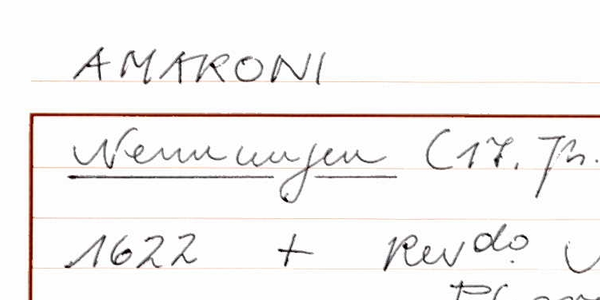 AMARONI
Nennungen (17. Jh.
1622 + Revdo.